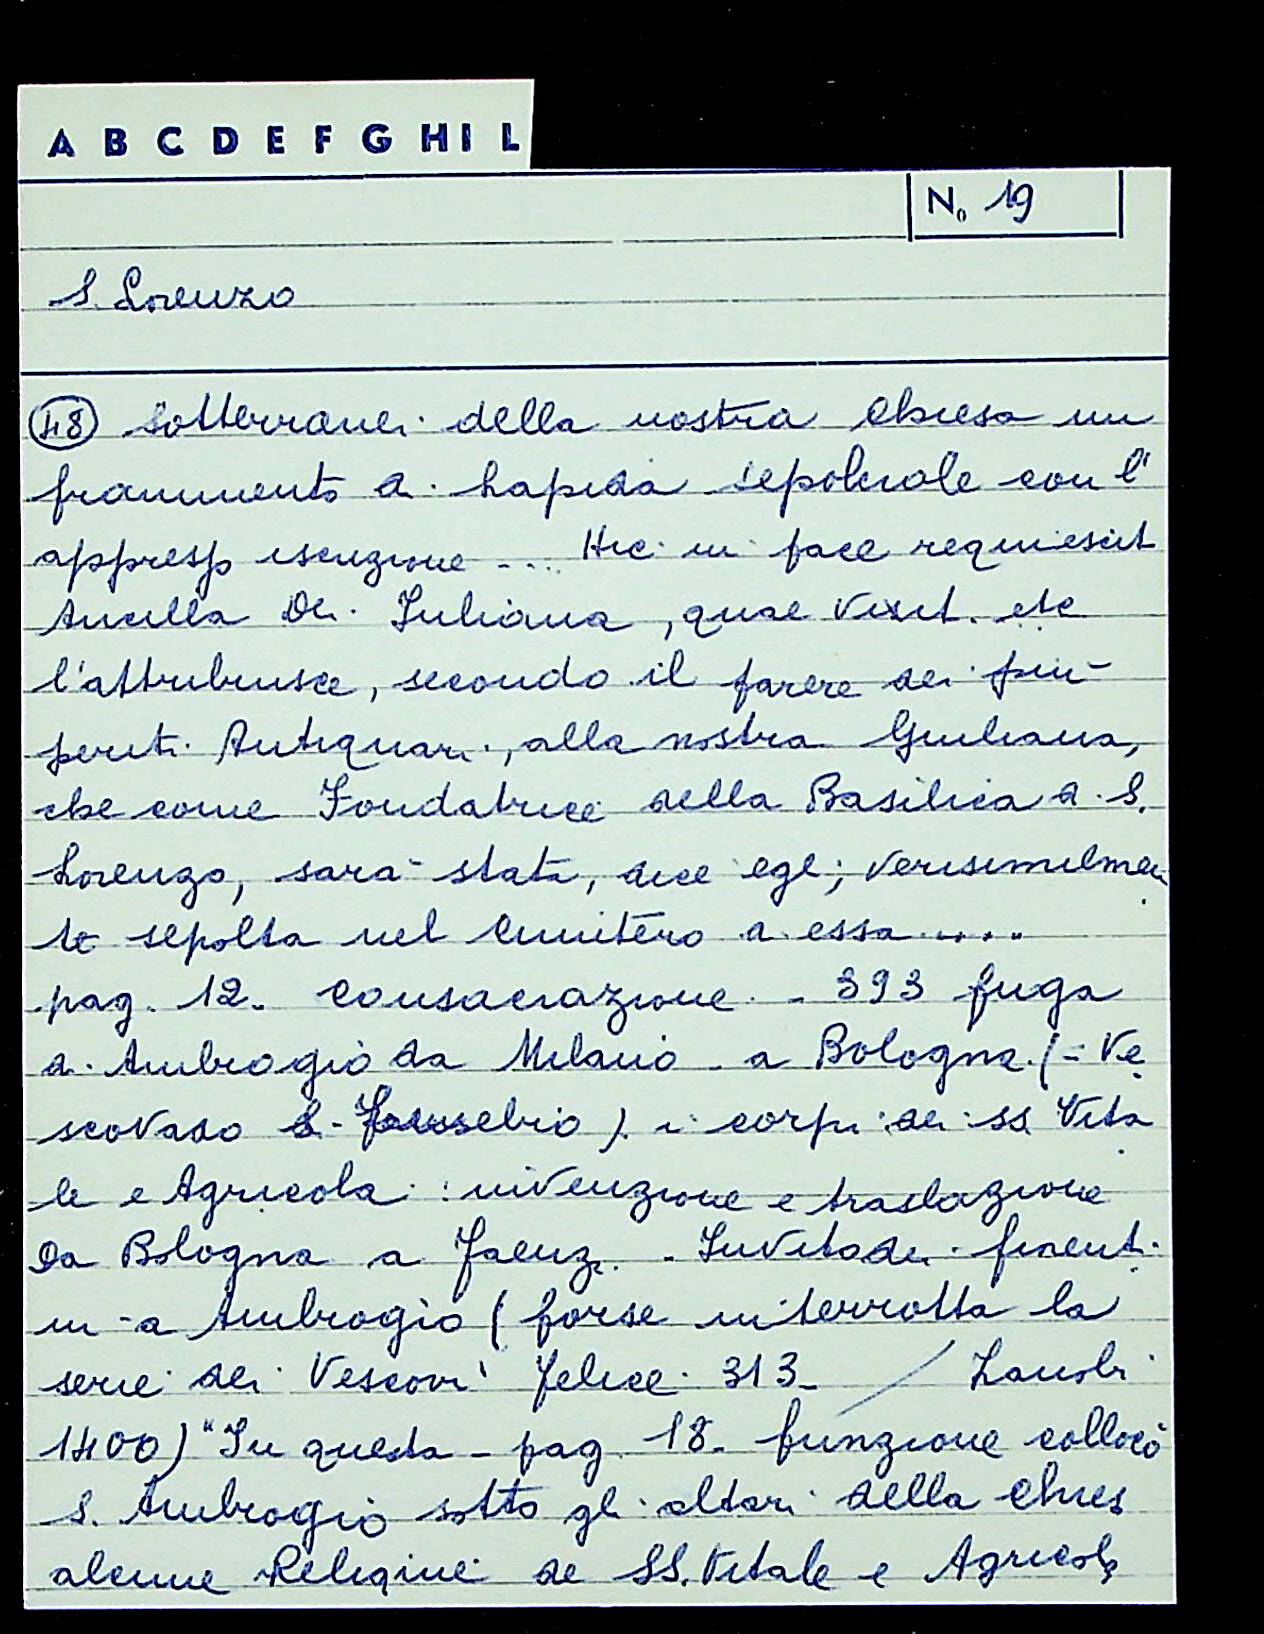 A B C D E F G H I L
N. 19
S. Lorenzo
(48) sotterranei della nostra chiesa un
frammento di Lapida sepolcrale con l'
appresso iscrizione .... Hic in pace requiescit
Ancilla Dei Iuliana, quae vixit. etc
l'attribuisce, secondo il parere dei più
periti Antiquari, alla nostra Giuliana,
che come Fondatrice della Basilica di S.
Lorenzo, sarà stata, dice egli, verisimilmen
te sepolta nel Cimitero di essa.....
pag. 12. Consacrazione - 393 fuga
di Ambrogio da Milano - a Bologna (= Ve
scovado S. Eusebio) i corpi dei ss Vita
le e Agricola : invenzione e traslazione
Da Bologna a - Invito dei fiorent.
ni a Ambrogio (forse interrotta la
serie dei Vescovi Felice 313 - / Zanobi
1400) "In questa - pag. 18. funzione collocò
S. Ambrogio sotto gli altari della chies
alcune Reliquie de SS. Vitale e Agricola